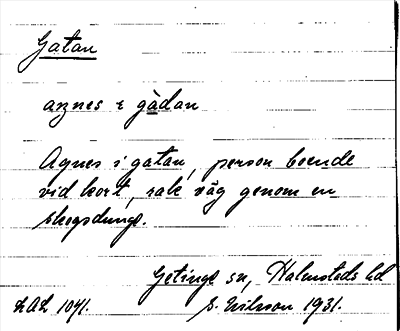 Gatan
aŋnes i gàdan
Agnes i gatan, person boende
vid kort, rak väg genom en
skogsdunge.
Getinge sn, Halmstads hd
LAL 1041. E. Nilsson 1931.